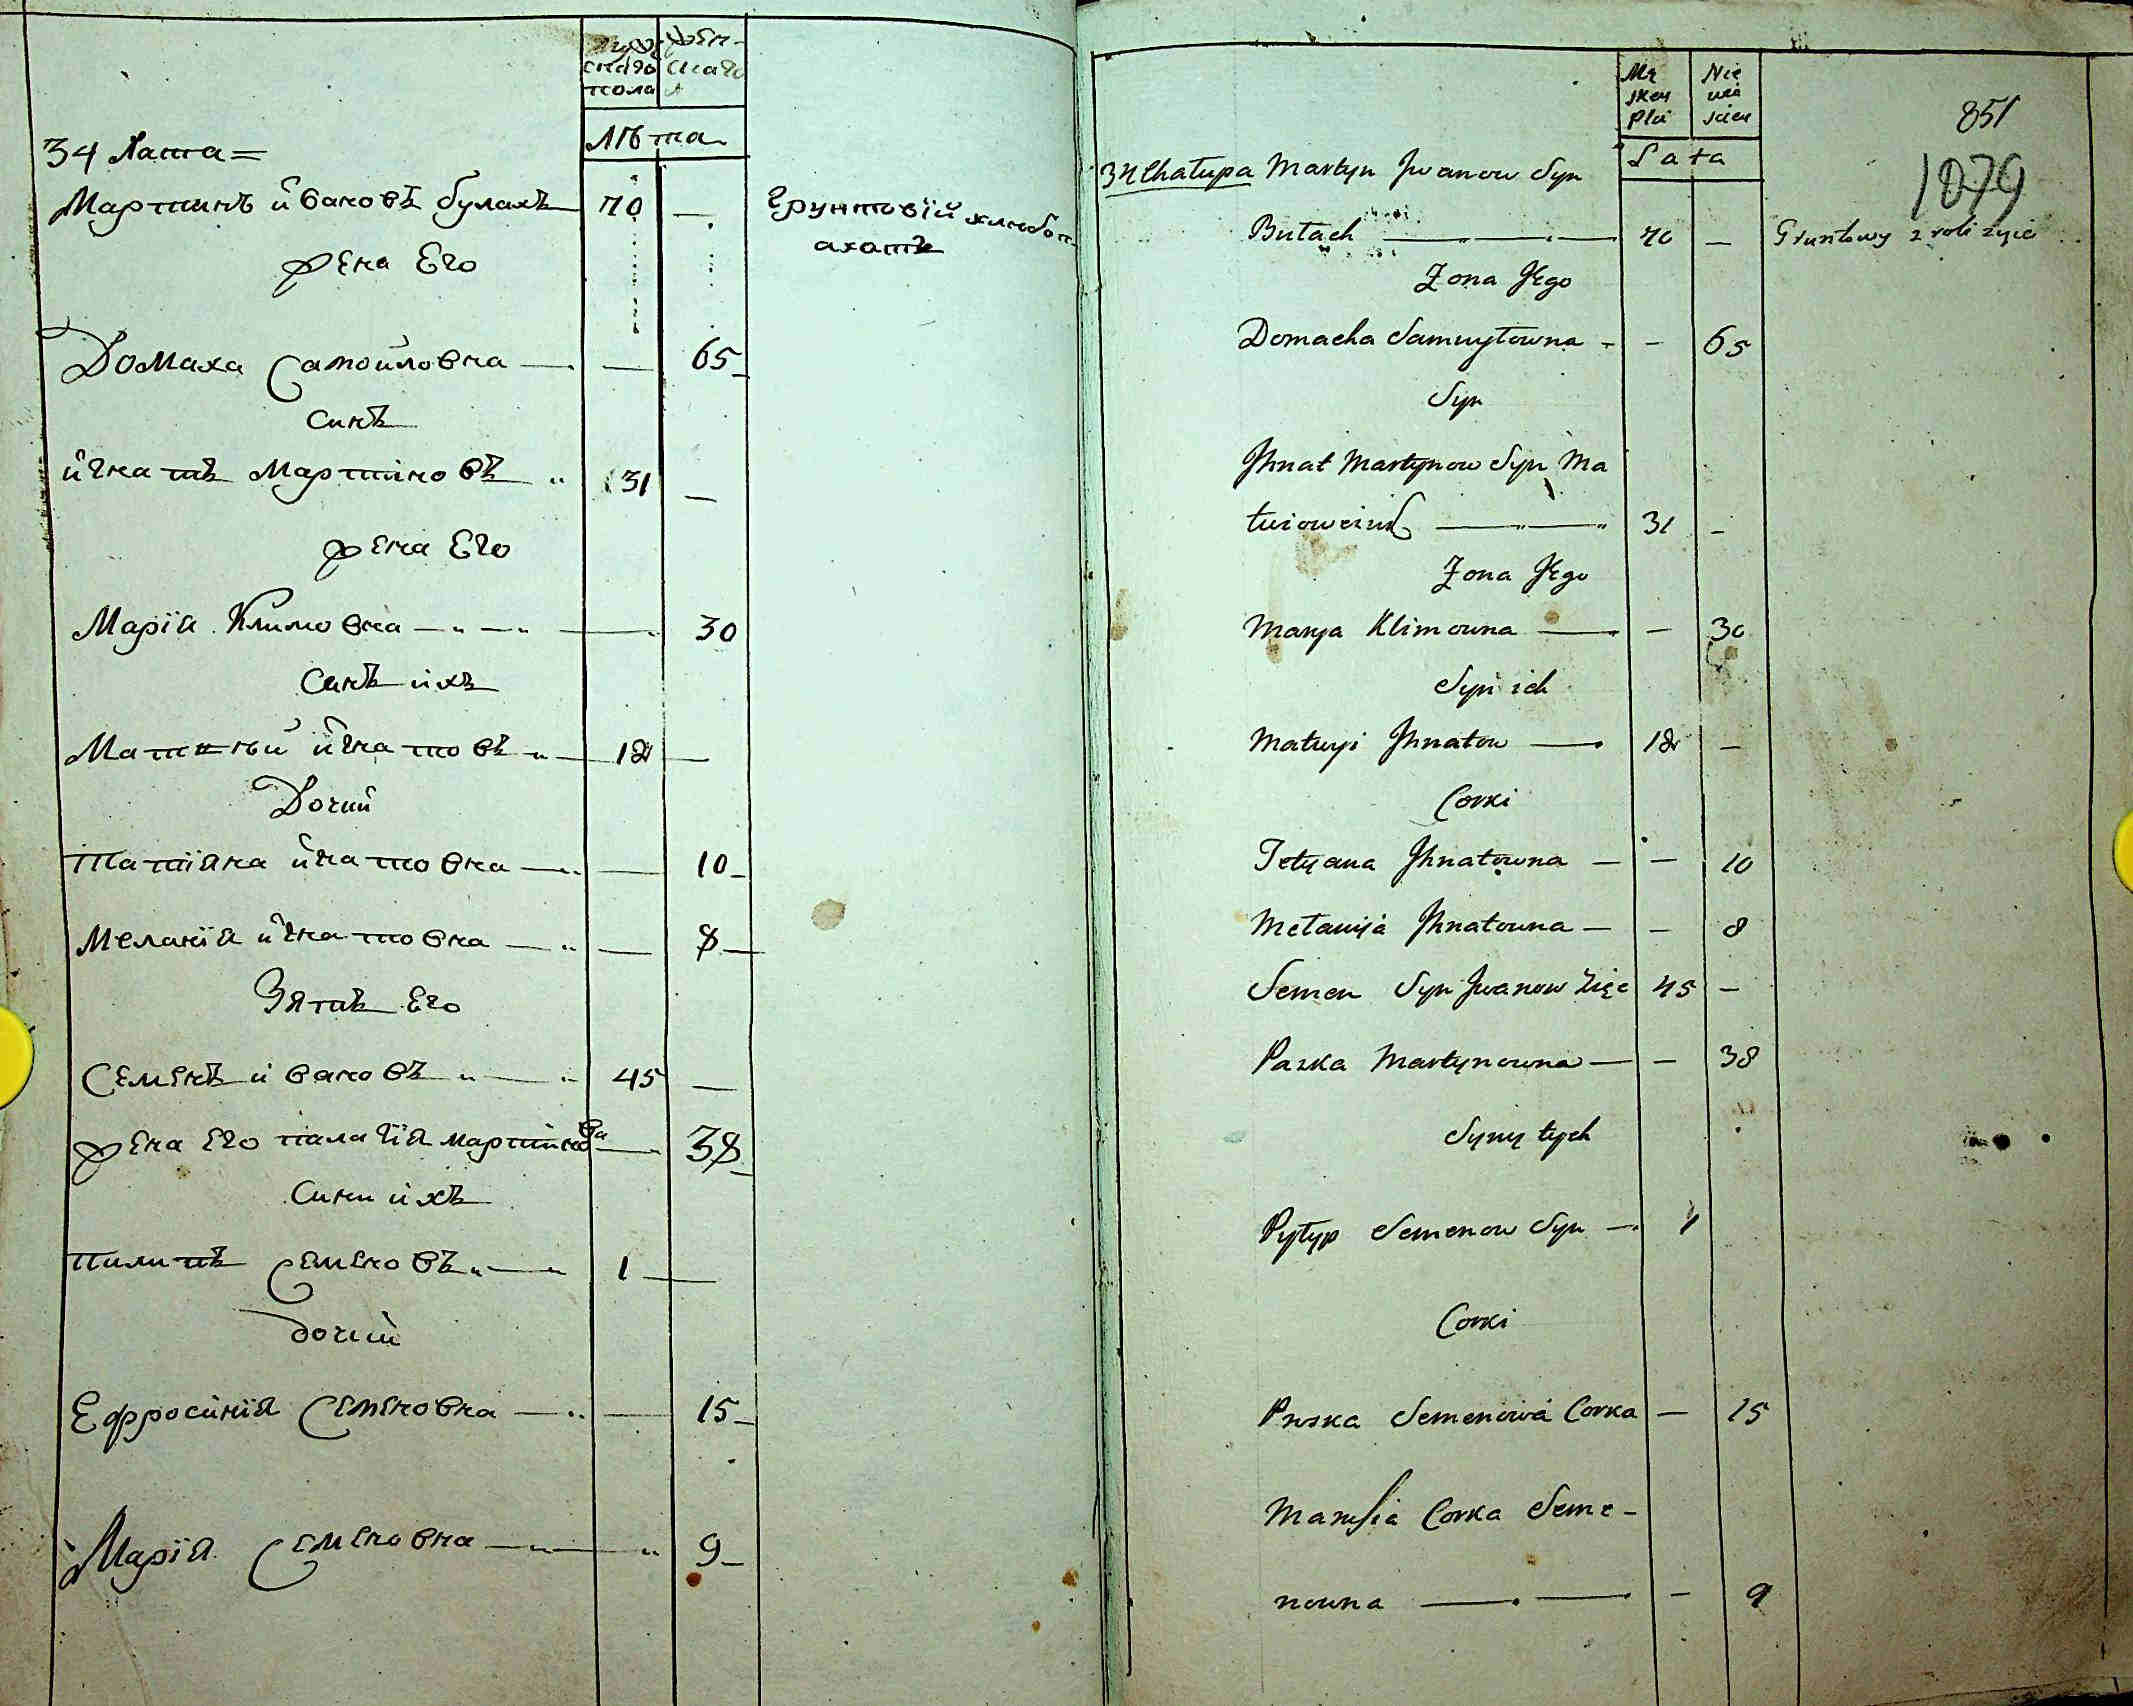 Муж
скаго
пола
Жен-
скаго
Лѣта
34 Хата =
Мартинъ Йвановъ булахъ — 70 —
Грунтовій хлюбоп
ахатъ
жена Его
Домаха Самойловна — — 65
Синъ
йгнатъ Мартиновъ 31 —
жена Его
Марія Климовна — — 30
Синъ ихъ
Матвѣй йгнатовъ — 12 —
Дочки
Татіяна йгнатовна — — 10
Меланія йгнатовна — — 8
Зятъ Его
Семенъ йвановъ — 45 —
жена Его палагія мартиновна — 38
Сини ихъ
пилипъ Семеновъ — 1 —
дочки
Ефросинія Семеновна — — 15
Марія Семеновна — 9
851
1079
Mę
skey
Płci
Nie
wia
sciey
Lata
34 Chałupa Martyn Jwanow Syn
Bułach — 70 — Gruntowy z roli żyie
Zona Jego
Domacha Samuyłowna - - 65
Syn
Jhnat Martynow Syn
31 -
Zona Jego
Marya Klimowna — - 30
Syn ich
Matwyi Jhnatow — 12 -
Corki
Tetyana Jhnatowna — - 10
Mełanija Jhnatowna — - 8
Semen Syn Jwanow Zięć 45 -
Paska Martynowna — - 38
Syny tych
Pyłyp Semenow Syn — 1
Corki
Pryska Semenowa Corka — 15
Marysia Corka Seme-
nowna — - 9